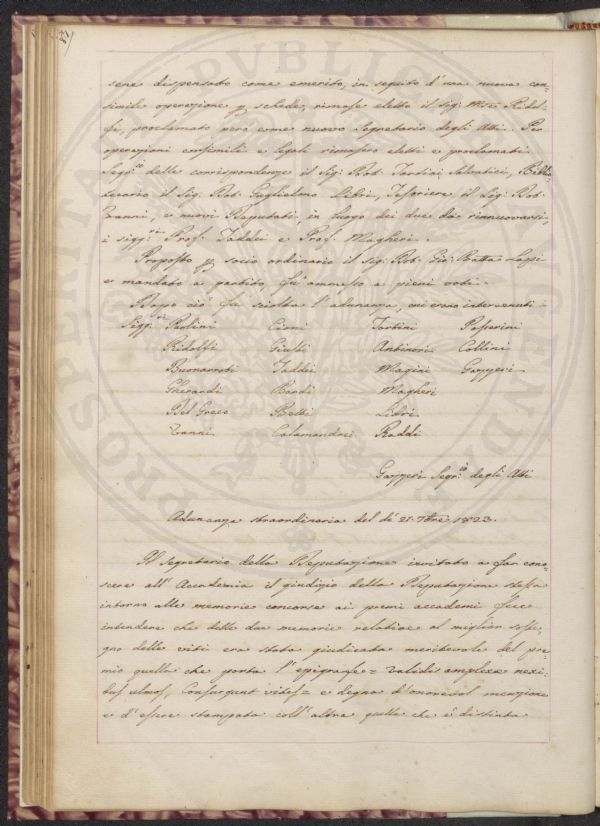 81
sere dispensato come emerito, in seguito d'una nuova con=
simile operazione p schede, rimase eletto il sig: Mse Ridol=
fi, proclamato però come nuovo Segretario degli Atti. Per
operazioni consimili e legali rimasero eletti e proclamati
Segr.io delle corrispondenze il Sig: Dot: Tartini Salvatici, Biblio=
tecario il Sig. Dot: Guglielmo Libri, Tesoriere il Sig: Dot:
Vanni, e nuovi Deputati, in luogo dei due da rinnuovarsi,
i sigg.ri Prof. Taddei e Prof. Magheri.
Proposto p socio ordinario il sig: Dot: Gio: Batta Lapi
e mandato a partito, fu ammesso a pieni voti.
Dopo ciò fu sciolta l'adunanza, cui erano intervenuti i
Sigg.ri Paolini Cioni Tartini Passerini
Ridolfi Giusti Antinori Collini
Buonarroti Taddei Magini Gazzeri
Gherardi Bardi Magheri
Del Greco Betti Libri
Vanni Calamandrei Raddi
Gazzeri Segr.io degli Atti
Adunanza straordinaria del dì 21. 7bre 1823.
Il segretario della Deputazione invitato a far cono=
scere all' Accademia il giudizio della Deputazione stessa
intorno alle memorie concorse ai premi accademi fece
intendere che delle due memorie relative al miglior soste=
gno delle viti era stata giudicata meritevole del pre=
mio quella che porta l'epigrafe = validis amplexae nexi=
bus ulmos, Consurgunt vites = e degna d'onorevol menzione
e d'essere stampata coll'altra quella che è distinta
PROSPERITATI PVBLICAE AVGENDAE